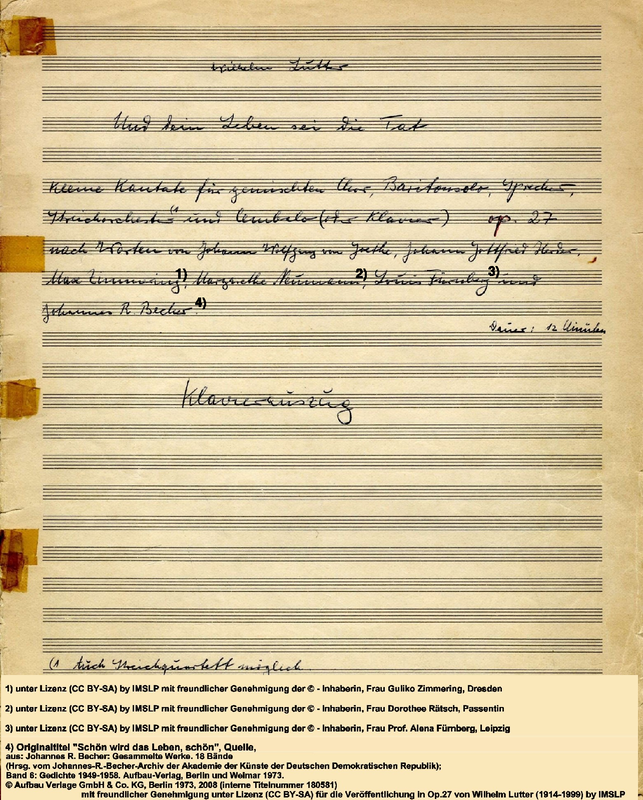 Wilhelm Lutter
Und dein Leben sei die Tat
Kleine Kantate für gemischten Chor, Baritonsolo, Sprecher,
Streichorchester (1 und Cembalo (oder Klavier) op. 27
nach Worten von Johann Wolfgang von Goethe, Johann Gottfried Herder,
Max Zimmering 1), Margarethe Neumann 2), Louis Fürnberg 3) und
Johannes R. Becher. 4)
Dauer: 12 Minuten
Klavierauszug
(1 Auch Streichquartett möglich.
1) unter Lizenz (CC BY-SA) by IMSLP mit freundlicher Genehmigung der © - Inhaberin, Frau Guliko Zimmering, Dresden
2) unter Lizenz (CC BY-SA) by IMSLP mit freundlicher Genehmigung der © - Inhaberin, Frau Dorothee Rätsch, Passentin
3) unter Lizenz (CC BY-SA) by IMSLP mit freundlicher Genehmigung der © - Inhaberin, Frau Prof. Alena Fürnberg, Leipzig
4) Originaltitel "Schön wird das Leben, schön", Quelle,
aus: Johannes R. Becher: Gesammelte Werke. 18 Bände
(Hrsg. vom Johannes-R.-Becher-Archiv der Akademie der Künste der Deutschen Demokratischen Republik);
Band 6: Gedichte 1949-1958. Aufbau-Verlag, Berlin und Weimar 1973.
© Aufbau Verlage GmbH & Co. KG, Berlin 1973, 2008 (interne Titelnummer 180581)
mit freundlicher Genehmigung unter Lizenz (CC BY-SA) für die Veröffentlichung in Op.27 von Wilhelm Lutter (1914-1999) by IMSLP